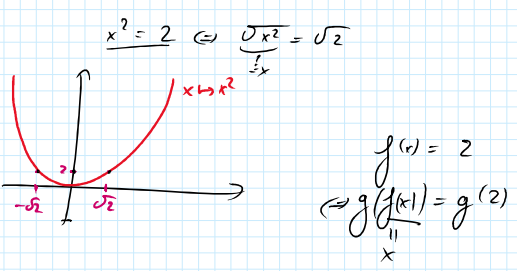 x² = 2 ⇔ √x² = √2
!
= x
x ↦ x²
2
-√2 √2
f(x) = 2
⇔ g(f(x)) = g(2)
||
x